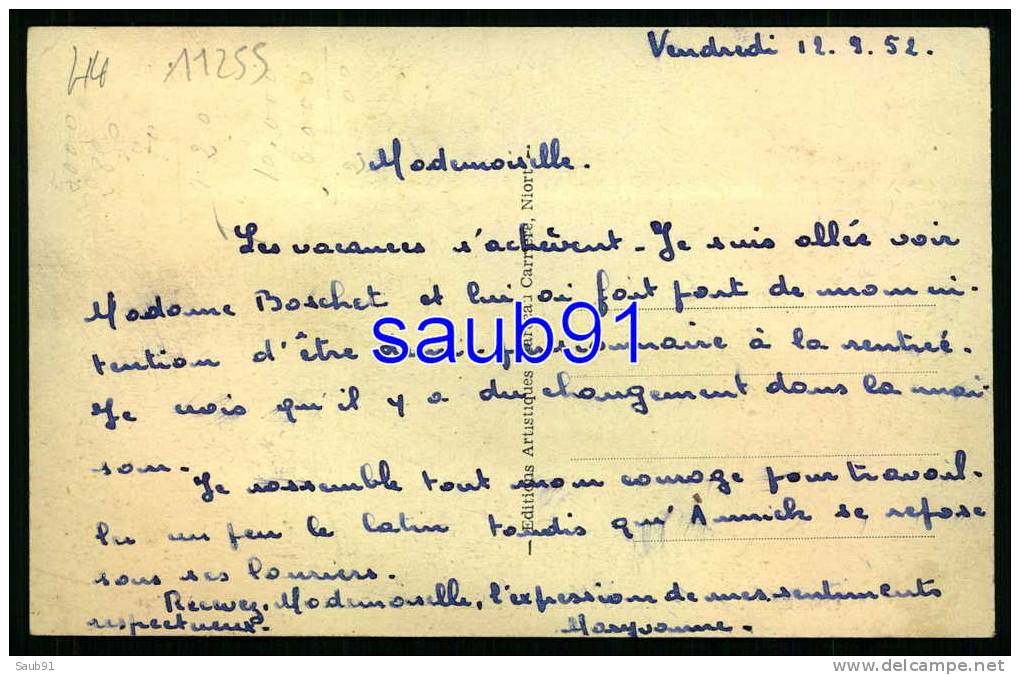 Vendredi 12.9.52.
44 11255
Mademoiselle.
Les vacances s'achèvent - Je suis allée voir
Madame Boschet et lui ai fait part de mon in-
tention d'être à la rentrée.
Je crois qu'il y a du changement dans la mai-
son -
Je rassemble tout mon courage pour travail-
ler un peu le latin tandis qu'Annick se repose
sous ses lauriers.
Recevez, Mademoiselle, l'expression de mes sentiments
respectueux.
Maryvonne -
Editions Artistiques Carrère, Niort
saub91
Saub91
www.delcampe.net